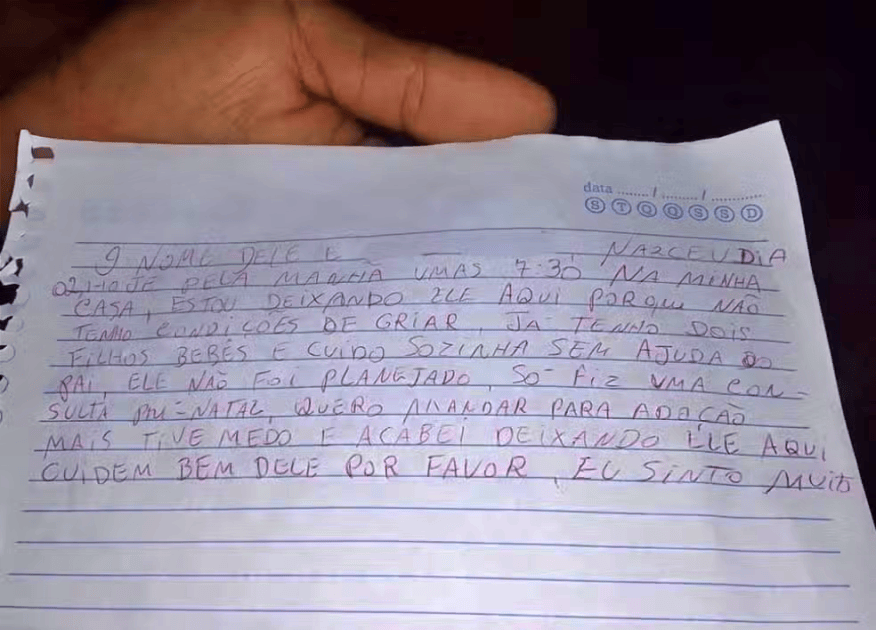 data ......./......./............
S T Q Q S S D
O NOME DELE E NASCEU DIA
02, HOJE PELA MANHÃ UMAS 7:30 NA MINHA
CASA, ESTOU DEIXANDO ELE AQUI PORQUE NÃO
TENHO CONDIÇOES DE CRIAR, JA TENHO DOIS
FILHOS BEBÊS E CUIDO SOZINHA SEM AJUDA DO
PAI, ELE NÃO FOI PLANEJADO, SO FIZ UMA CON-
SULTA PRE-NATAL, QUERO MANDAR PARA ADOÇÃO
MAIS TIVE MEDO E ACABEI DEIXANDO ELE AQUI
CUIDEM BEM DELE POR FAVOR, EU SINTO MUITO